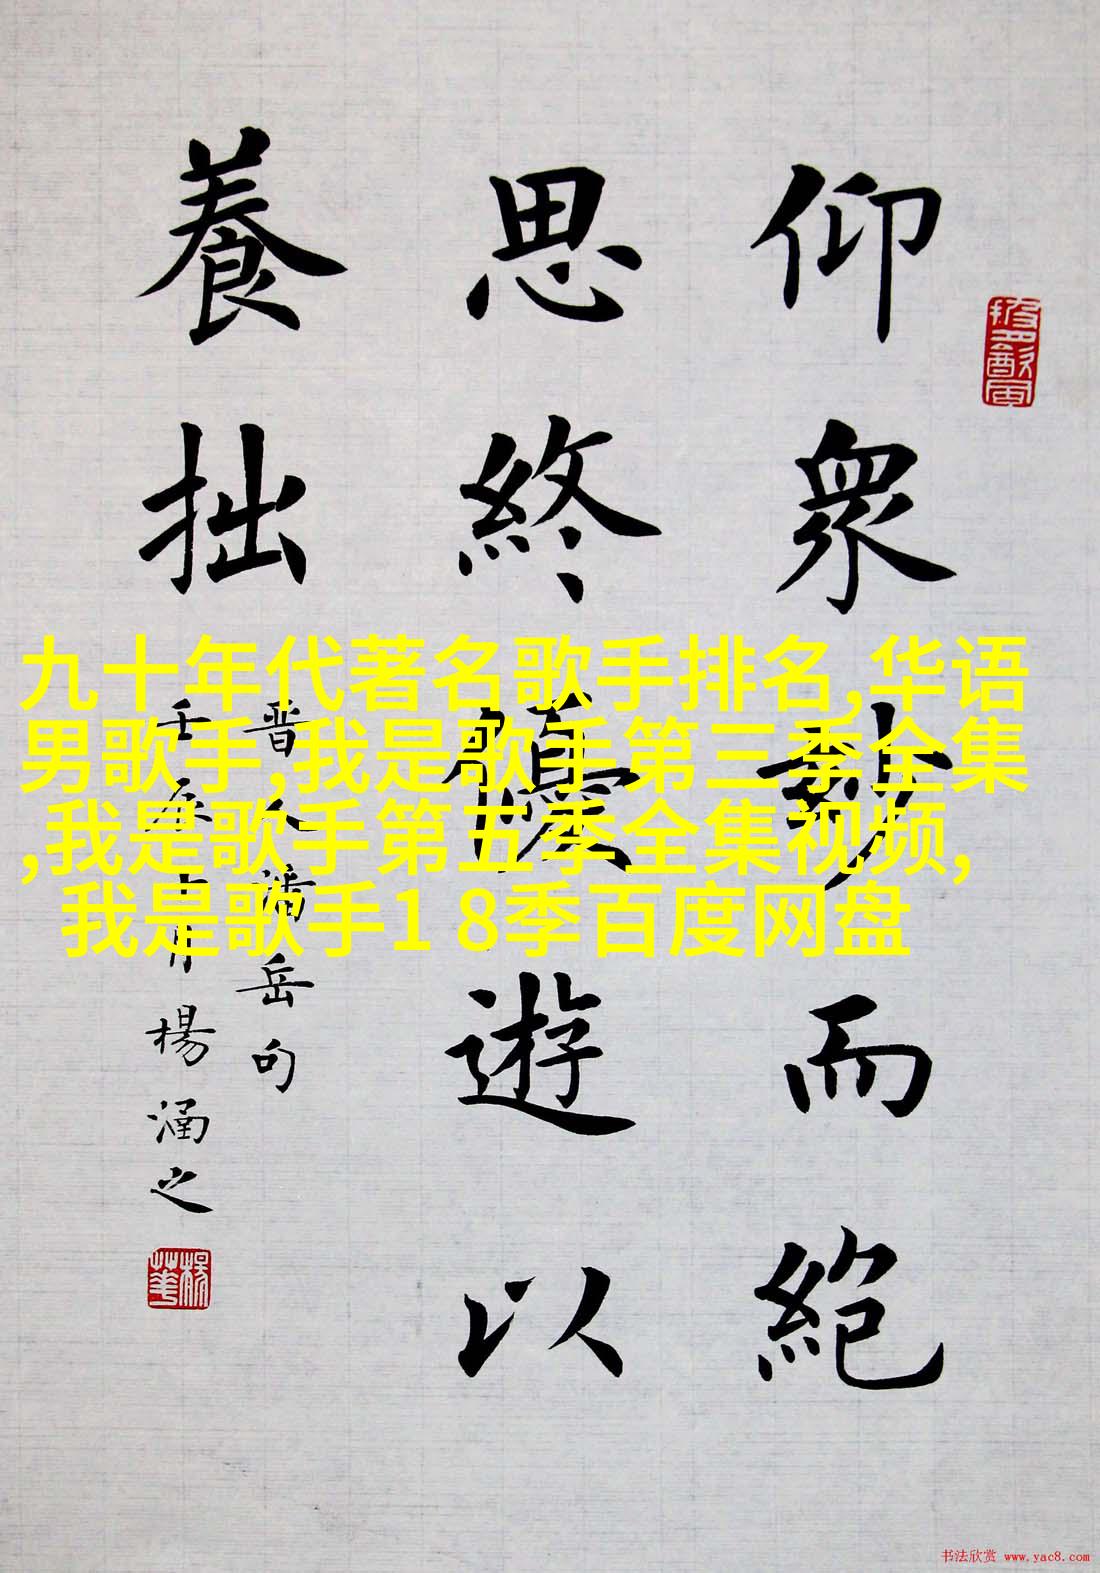 仰眾妙而絕
思終優遊以
養拙
晉人潘岳句
壬辰月楊涵之
九十年代著名歌手排名,华语
男歌手,我是歌手第三季全集
,我是歌手第五季全集视频,
我是歌手1 8季百度网盘
书法欣赏 www.yac8.com